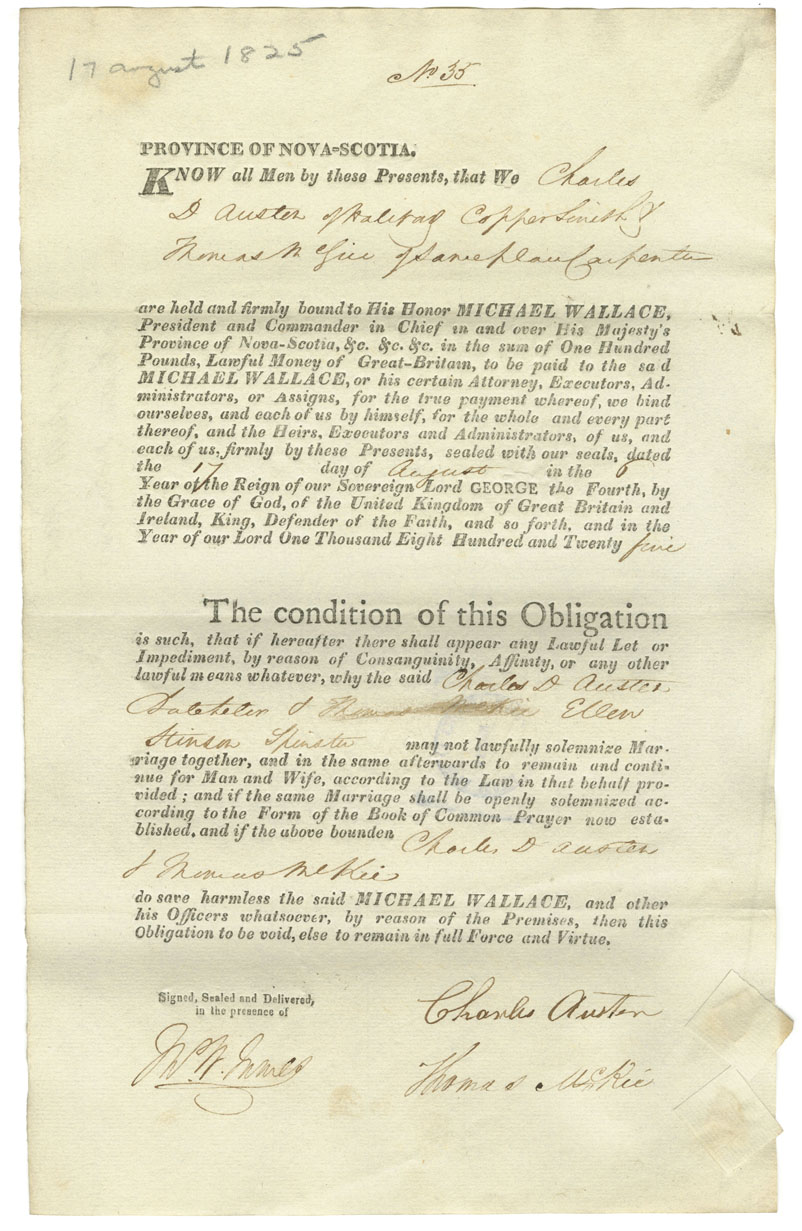 17 august 1825
No 35
PROVINCE OF NOVA=SCOTIA.
KNOW all Men by these Presents, that We Charles
D Austen of Halifax Copper Smith &
Thomas of Same place Carpenter
are held and firmly bound to His Honor MICHAEL WALLACE,
President and Commander in Chief in and over His Majesty's
Province of Nova-Scotia, &c. &c. &c. in the sum of One Hundred
Pounds, Lawful Money of Great-Britain, to be paid to the said
MICHAEL WALLACE, or his certain Attorney, Executors, Ad-
ministrators, or Assigns, for the true payment whereof, we bind
ourselves, and each of us by himself, for the whole and every part
thereof, and the Heirs, Executors and Administrators, of us, and
each of us, firmly by these Presents, sealed with our seals, dated
the 17 day of August in the 6
Year of the Reign of our Sovereign Lord GEORGE the Fourth, by
the Grace of God, of the United Kingdom of Great Britain and
Ireland, King, Defender of the Faith, and so forth, and in the
Year of our Lord One Thousand Eight Hundred and Twenty five
The condition of this Obligation
is such, that if hereafter there shall appear any Lawful Let or
Impediment, by reason of Consanguinity, Affinity, or any other
lawful means whatever, why the said Charles D Austen
Batcheler & Thomas McKie Ellen
Stinson Spinster may not lawfully solemnize Mar-
riage together, and in the same afterwards to remain and conti-
nue for Man and Wife, according to the Law in that behalf pro-
vided; and if the same Marriage shall be openly solemnized ac-
cording to the Form of the Book of Common Prayer now esta-
blished, and if the above bounden Charles D Austen
& Thomas McKie
do save harmless the said MICHAEL WALLACE, and other
his Officers whatsoever, by reason of the Premises, then this
Obligation to be void, else to remain in full Force and Virtue.
Signed, Sealed and Delivered,
in the presence of
Charles Austen
Thomas McKie